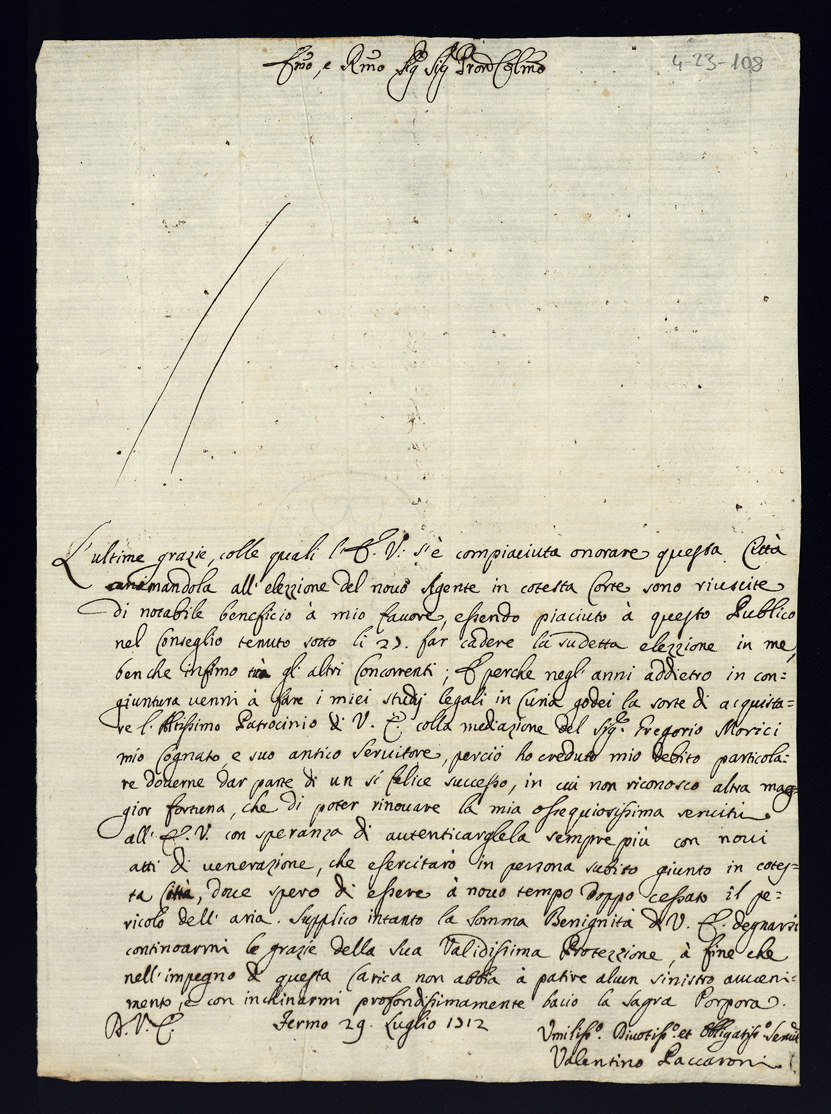 Em̃o, e Rm̃o Sig Sig Pron Colm̃o
4-23-108
L'ultime grazie, colle quali l'E. V. s'è compiaciuta onorare questa Città
animandola all'elezzione del novo Agente in cotesta Corte sono riuscite
di notabile beneficio à mio favore, essendo piaciuto à questo Publico
nel Conseglio tenuto sotto li 21. far cadere la sudetta elezzione in me,
benche infimo trà gl'altri Concorrenti; E perche negl'anni addietro in con=
giuntura venni à fare i miei studj legali in Curia godei la sorte di acquista=
re l'Altissimo Patrocinio di V. E. colla mediazione del Sigre Gregorio Morici
mio Cognato, e suo antico servitore, perciò ho creduto mio debito particola=
re doverne dar parte di un sì felice successo, in cui non riconosco altra mag=
gior fortuna, che di poter rinovare la mia ossequiosissima servitù
all'E. V. con speranza di autenticarglela sempre più con novi
atti di venerazione, che esercitarò in persona subito giunto in cotes=
ta Città, dove spero di essere à novo tempo doppo cessato il pe=
ricolo dell'aria. Supplico intanto la somma Benignità di V. E. degnarsi
continoarmi le grazie della sua Validissima Protezzione, à fine che
nell'impegno di questa Carica non abbia à patire alcun sinistro avveni=
mento, e con inchinarmi profondissimamente bacio la Sagra Porpora.
D. V. E. Fermo 29. Luglio 1712
Umiliss.o Divotiss.o et Obligatiss.o Servit
Valentino Paccaroni